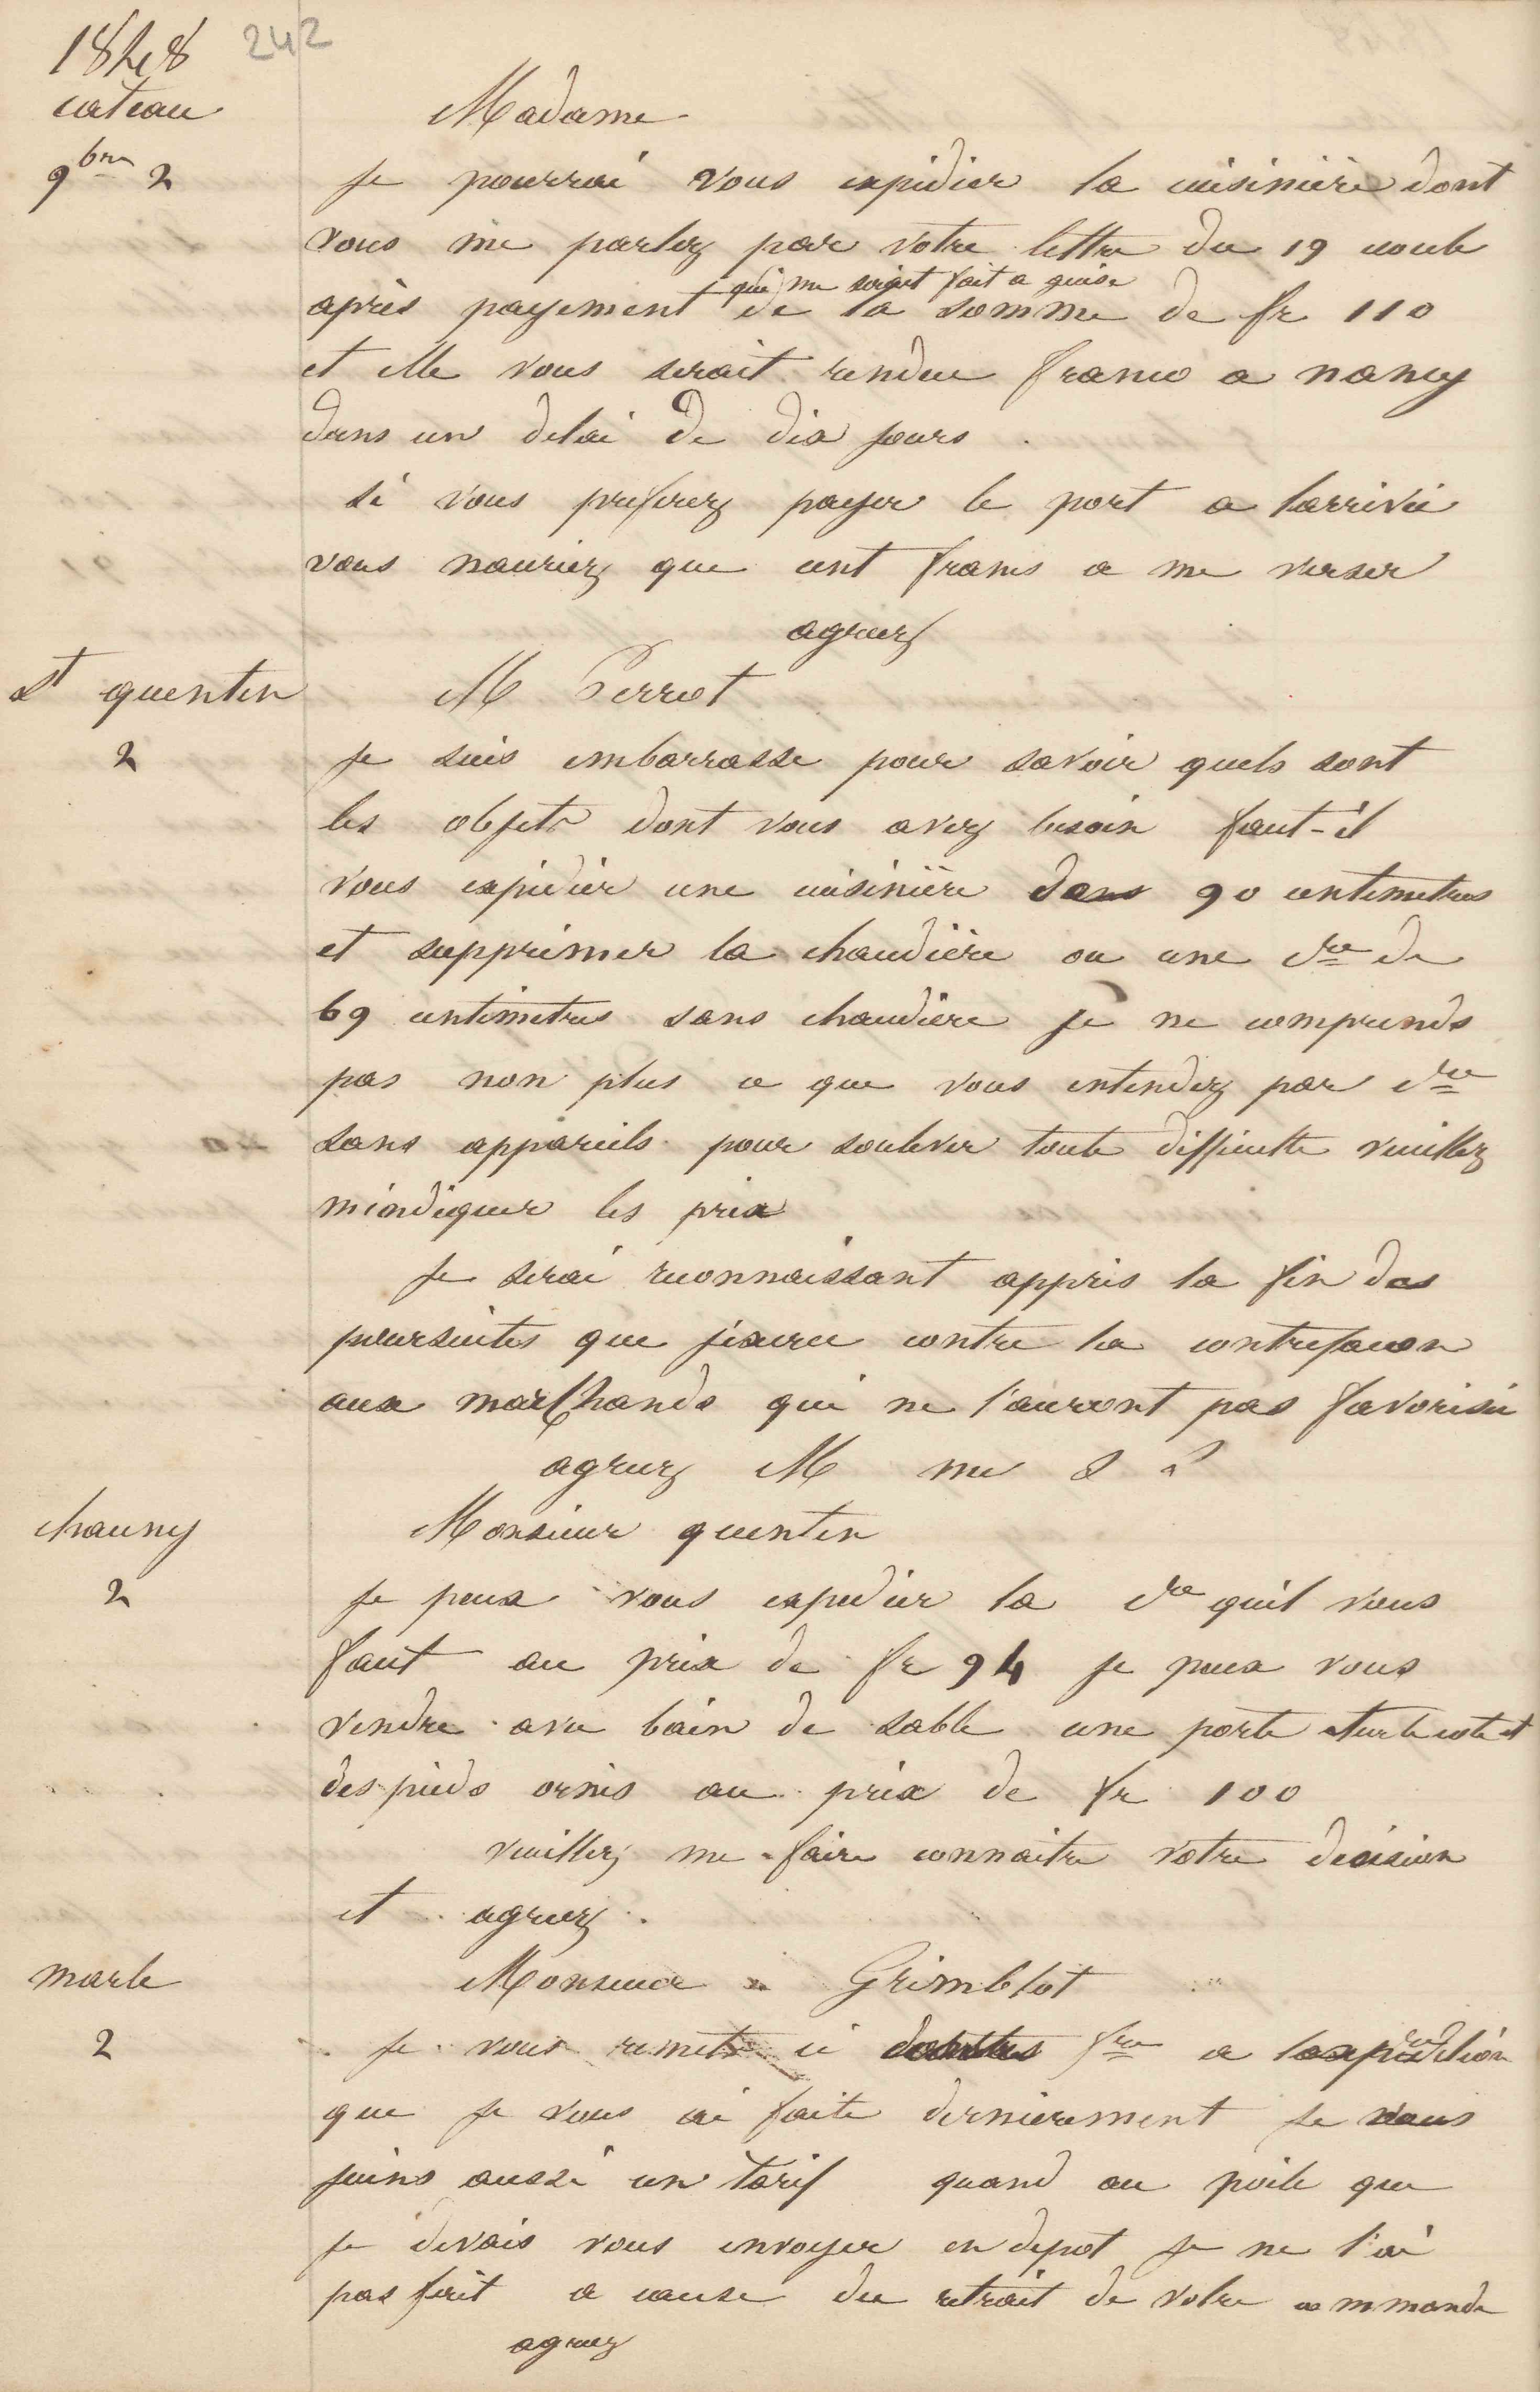 1848 242
cateau
9bre 2
Madame
je pourrai vous expidier la cuisinière dont
vous me parlez par votre lettre du 19 ecoule
qui me soient fait a guise
après payement de la somme de fr 110
et elle vous serait rendue franco a nancy
dans un delai de dix jours
si vous preferez payer le port a larrivée
vous nauriez que cent francs a me verser
agreez
st quentin
2
M Perrot
je suis embarrasse pour savoir quels sont
les objets dont vous avez besoin faut-il
vous expidier une cuisinière dans 90 centimetres
et supprimer la chaudière ou une dre de
69 centimetres sans chaudière je ne comprends
pas non plus ce que vous entendez par dre
sans appareils pour soulever toute difficulte veuillez
mindiquer les prix
je serai reconnaissant appris la fin des
poursuites que jexerce contre la contrefacon
aux marchands qui ne l'auront pas favorisée
agreez M me S
chauny
2
Monsieur quentin
je peux vous expedier la dre quil vous
faut au prix de fr 94 je peux vous
vendre avec bain de sable une porte sur le coté et
des pieds ornés au prix de fr 100
veuillez me faire connaitre votre decision
et agreez
marle
2
Monsieur Grimblot
je vous remets ci fre a lexpedition
que je vous ai faite dernierement je vous
joins aussi un tarif quand au poile que
je devais vous envoyer en depot je ne l'ai
pas fait a cause du retrait de votre commande
agreez